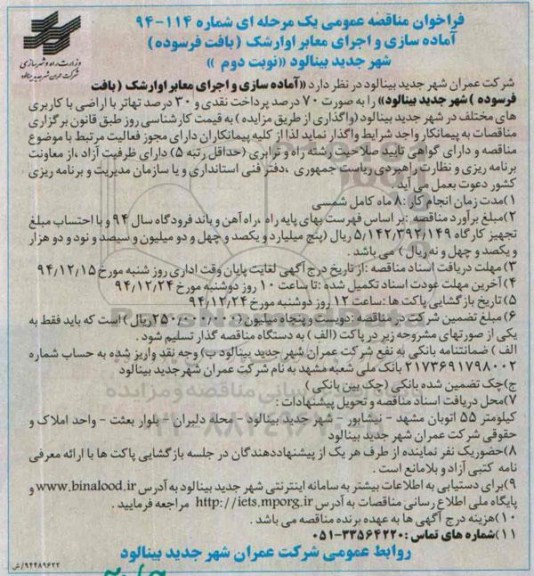 فراخوان مناقصه عمومی یک مرحله ای شماره ۱۱۴-۹۴
آماده سازی و اجرای معابر اوارشک (بافت فرسوده)
شهر جدید بینالود «نوبت دوم»
وزارت راه و شهرسازی
شرکت عمران شهر جدید بینالود
شرکت عمران شهر جدید بینالود در نظر دارد «آماده سازی و اجرای معابر اوارشک (بافت
فرسوده) شهر جدید بینالود» را به صورت ۷۰ درصد پرداخت نقدی و ۳۰ درصد تهاتر با اراضی با کاربری
های مختلف در شهر جدید بینالود (واگذاری از طریق مزایده) به قیمت کارشناسی روز طبق قانون برگزاری
مناقصات به پیمانکار واجد شرایط واگذار نماید لذا از کلیه پیمانکاران دارای مجوز فعالیت مرتبط با موضوع
مناقصه و دارای گواهی تایید صلاحیت رشته راه و ترابری (حداقل رتبه ۵) دارای ظرفیت آزاد ،از معاونت
برنامه ریزی و نظارت راهبردی ریاست جمهوری ،دفتر فنی استانداری و یا سازمان مدیریت و برنامه ریزی
کشور دعوت بعمل می آید .
۱)مدت زمان انجام کار :۸ ماه کامل شمسی
۲)مبلغ برآورد مناقصه :بر اساس فهرست بهای پایه راه ،راه آهن و باند فرودگاه سال ۹۴ و با احتساب مبلغ
تجهیز کارگاه ۵/۱۴۲/۳۹۲/۱۴۹ ریال (پنج میلیارد و یکصد و چهل و دو میلیون و سیصد و نود و دو هزار
و یکصد و چهل و نه ریال) می باشد .
۳) مهلت دریافت اسناد مناقصه :از تاریخ درج آگهی لغایت پایان وقت اداری روز شنبه مورخ ۹۴/۱۲/۱۵
۴)آخرین مهلت عودت اسناد تکمیل شده :تا ساعت ۱۰ روز دوشنبه مورخ ۹۴/۱۲/۲۴
۵)تاریخ بازگشایی پاکت ها :ساعت ۱۲ روز دوشنبه مورخ ۹۴/۱۲/۲۴
۶) مبلغ تضمین شرکت در مناقصه :دویست و پنجاه میلیون ریال است که باید فقط به
یکی از صورتهای مشروحه زیر در پاکت (الف) به دستگاه مناقصه گذار تسلیم شود .
الف) ضمانتنامه بانکی به نفع شرکت عمران شهر جدید بینالود ب) وجه نقد واریز شده به حساب شماره
۲۱۷۳۶۹۱۷۹۸۰۰۲ بانک ملی شعبه مشهد به نام شرکت عمران شهر جدید بینالود
ج)چک تضمین شده بانکی (چک بین بانکی)
۷)محل دریافت اسناد مناقصه و تحویل پیشنهادات :
کیلومتر ۵۵ اتوبان مشهد - نیشابور - شهر جدید بینالود - محله دلبران - بلوار بعثت - واحد املاک و
حقوقی شرکت عمران شهر جدید بینالود
۸)حضوریک نفر نماینده از طرف هر یک از پیشنهاددهندگان در جلسه بازگشایی پاکت ها با ارائه معرفی
نامه کتبی آزاد و بلامانع است .
۹)برای دستیابی به اطلاعات بیشتر به سامانه اینترنتی شهر جدید بینالود به آدرس www.binalood.ir و
پایگاه ملی اطلاع رسانی مناقصات به آدرس http://iets.mporg.ir مراجعه فرمایید .
۱۰)هزینه درج آگهی ها به عهده برنده مناقصه می باشد .
۱۱)شماره های تماس :۳۳۵۶۴۲۲۰-۰۵۱
روابط عمومی شرکت عمران شهر جدید بینالود
۹۴۴۸۹۶۲۲/ش